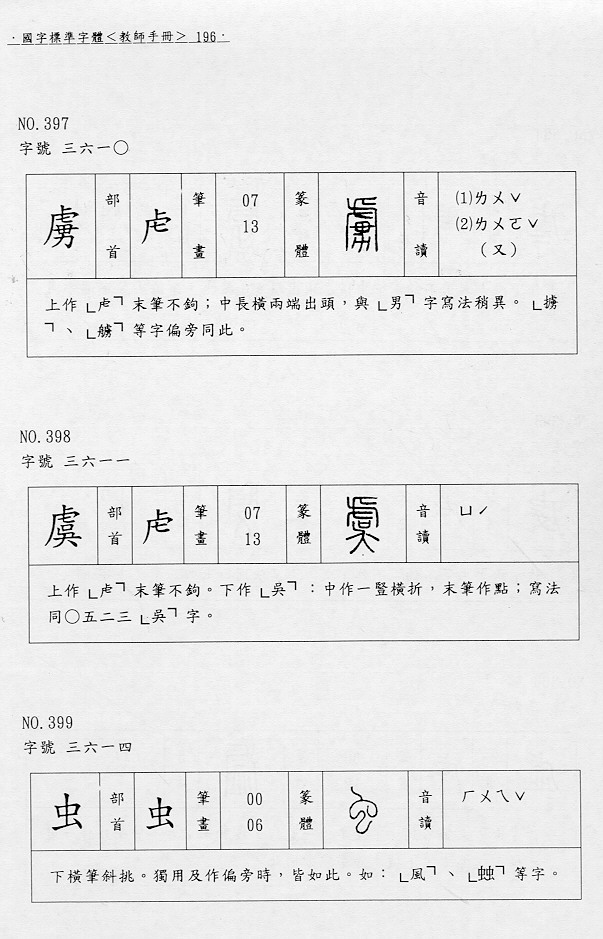 ·國字標準字體<教師手冊> 196·
NO.397
字號 三六一〇
虜 部首 虍 筆畫 07 13 篆體 虜 音讀 ⑴ㄌㄨˇ ⑵ㄌㄨㄛˇ (又)
上作「虍」末筆不鉤;中長橫兩端出頭,與「男」字寫法稍異。「擄
」、「艣」等字偏旁同此。
NO.398
字號 三六一一
虞 部首 虍 筆畫 07 13 篆體 虞 音讀 ㄩˊ
上作「虍」末筆不鉤。下作「吳」:中作一豎橫折,末筆作點;寫法
同〇五二三「吳」字。
NO.399
字號 三六一四
虫 部首 虫 筆畫 00 06 篆體 虫 音讀 ㄏㄨㄟˇ
下橫筆斜挑。獨用及作偏旁時,皆如此。如:「風」、「蝕」等字。